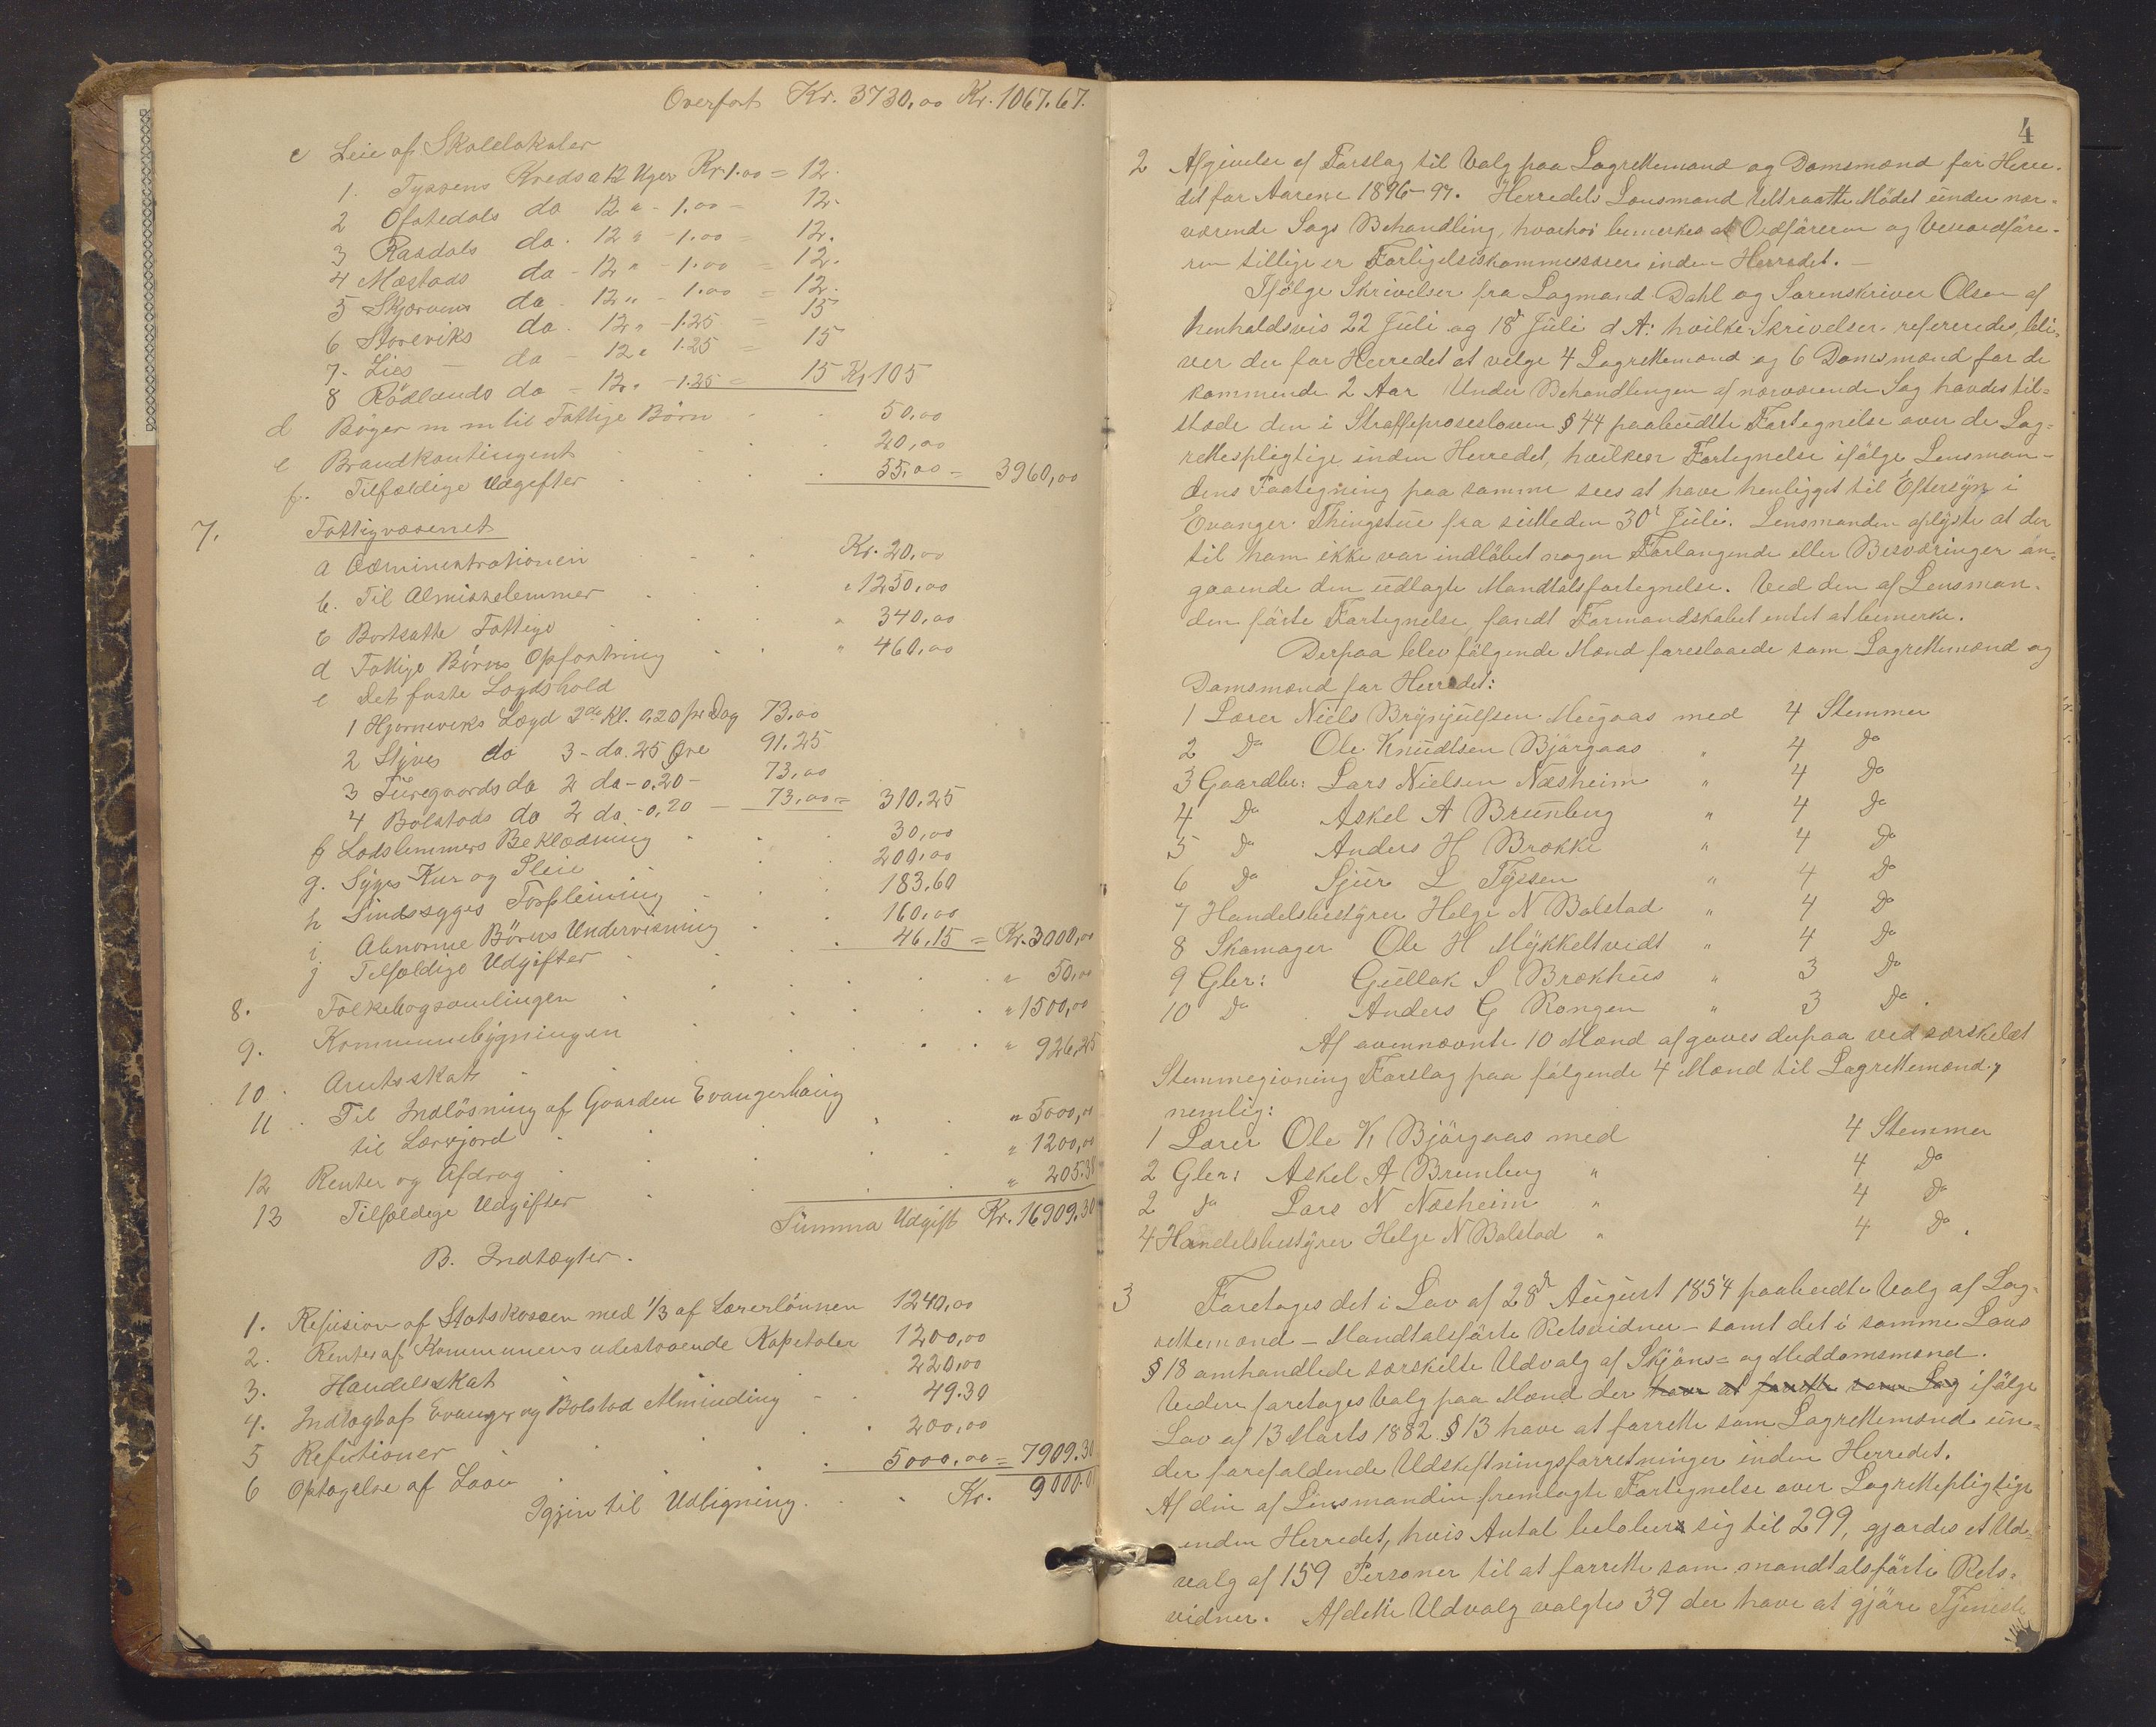 Overfort Kr. 3730,00 Kr. 1067.67.
c Leie af Skolelokaler
1. Tyssens Kreds a 12 Uger Kr. 1.00 = 12.
2 Ofstedals do 12 " - 1.00 - 12.
3 Rasdals do. 12 " - 1.00 = 12.
4 Mæstads da - 12 " - 1.00 = 12.
5 Skjervens da - 12 " - 1.00 = 12.
6 Storeviks da. 12 " - 1.25 = 15
7. Lies - da - 12 " 1.25 = 15
8 Rödlands da - 12 " - 1.25 = 15 Kr 105
d Bøger m m til Fattige Börn 50,00
e Brandkontingent 20,00
f. Tilfældige Udgifter 55,00 = 3960,00
7. Fattigvæsenet
a Administrationen Kr. 20,00
b. Til Almisselemmer " 1250,00
c Bortsatte Fattige " 340,00
d Fattige Börns Opfostring " 460,00
e Det faste Lægdshold
1 Hjerneviks Lægd 2de Kl. 0,20 pr Dag 73,00
2 Styves do 3 - do. 25 Øre 91.25
3 Furegaards da 2 da - 0,20 - 73,00
4 Bolstads da 2 da. - 0,20 - 73,00 = 310,25
f Lædslemmers Beklædning 30,00
g. Syges Kur og Pleie 200,00
h Sindssyges Forpleining 183.60
i. Abnorme Börns Undervisning 160,00
j Tilfældige Udgifter 46,15 = Kr. 3000,00
8. Folkebogsamlingen " 50,00
9. Kommunebygningen " 1500,00
10. Amtsskat " 926,25
11. Til Indlösning af Gaarden Evangerhaug
til Lærerjord " 5000,00
12 Renter og Afdrag " 1200,00
13 Tilfældige Udgifter " 205.38
Summa Udgift Kr. 16909.30
B. Indtægter.
1. Refusion af Statskassen med 1/3 af Lærerlönnen 1240,00
2. Renter af Kommunens udestaaende Kapitaler 1200,00
3. Handelsskat 220,00
4. Indtægt af Evanger og Bolstad Alminding 49.30
5 Refutioner 200,00
6 Optagelse af Laan 5000,00 = 7909.30
Igjen til Udligning. Kr. 9000.00
4
2 Afgivelse af Forslag til Valg paa Lagrettemænd og Domsmænd for Herre-
det for Aarene 1896-97. Herredets Lensmand tiltraatte Mödet under nær-
værende Sags Behandling, hvorhos bemerkes at Ordföreren og Viceordföre-
ren tillige er Forligelseskommissærer inden Herredet. -
Ifölge Skrivelser fra Lagmand Dahl og Sorenskriver Olsen af
henholdsvis 22 Juli og 18d Juli d A: hvilke Skrivelser refereredes, bli-
ver der for Herredet at velge 4 Lagrettemænd og 6 Domsmænd for de
kommende 2 Aar. Under Behandlingen af nærværende Sag havdes til-
stede den i Straffeprosesloven § 44 paabudte Fortegnelse over de Lag-
rettespligtige inden Herredet, hvilken Fortegnelse ifölge Lensman-
dens Paategning paa samme sees at have henligget til Eftersyn i
Evanger Thingstue fra siden 30te Juli. Lensmanden oplyste at der
til ham ikke var indlöbet nogen Forlangende eller Besværinger an-
gaaende den udlagte Mandtalsfortegnelse. Ved den af Lensman-
den förte Fortegnelse fandt Formandskabet intet at bemerke.
Derpaa blev fölgende Mænd foreslaaede som Lagrettemænd og
Domsmænd for Herredet:
1 Lærer Niels Brynjulfsen Mugaas med 4 Stemmer
2 Do Ole Knudtsen Bjørgaas " 4 Do
3 Gaardbr: Lars Nielsen Næsheim " 4 Do
4 Do Askel A Brunborg " 4 Do
5 Do Anders H Brække " 4 Do
6 Do Sjur L Tyssen " 4 Do
7 Handelsbestyrer Helge N Bolstad " 4 Do
8 Skomager Ole H Mykkeltvedt " 4 Do
9 Gbr: Gullak S Brækhus " 3 Do
10 Do Anders G Rongen " 3 Do.
Af ovennævnte 10 Mænd afgaves derpaa ved særskildt
Stemmegivning Forslag paa fölgende 4 Mænd til Lagrettemænd,
nemlig:
1 Lærer Ole K Bjørgaas med 4 Stemmer
2 Gbr: Askel A Brunborg " 4 Do
2 Do Lars N Næsheim " 4 Do
4 Handelsbestyrer Helge N Bolstad " 4 Do.
3 Foretages det i Lov af 28d August 1854 paabudte Valg af Lag-
rettemænd - Mandtalsförte Retsvidner - samt det i samme Lovs
§ 18 omhandlede særskilte Udvalg af Skjöns- og Meddomsmænd.
Videre foretages Valg paa Mænd der have at forrette som Lag ifölge
Lov af 13 Marts 1882 § 13 have at forrette som Lagrettemænd un-
der forefaldende Udskiftningsforretninger inden Herredet.
Af den af Lensmanden fremlagte Fortegnelse over Lagrettepligtige
inden Herredet, hvis Antal beløber sig til 299, gjordes et Ud-
valg af 159 Personer til at forrette som mandtalsförte Rets-
vidner. Af dette Udvalg valgtes 39 der have at gjöre Tjeneste